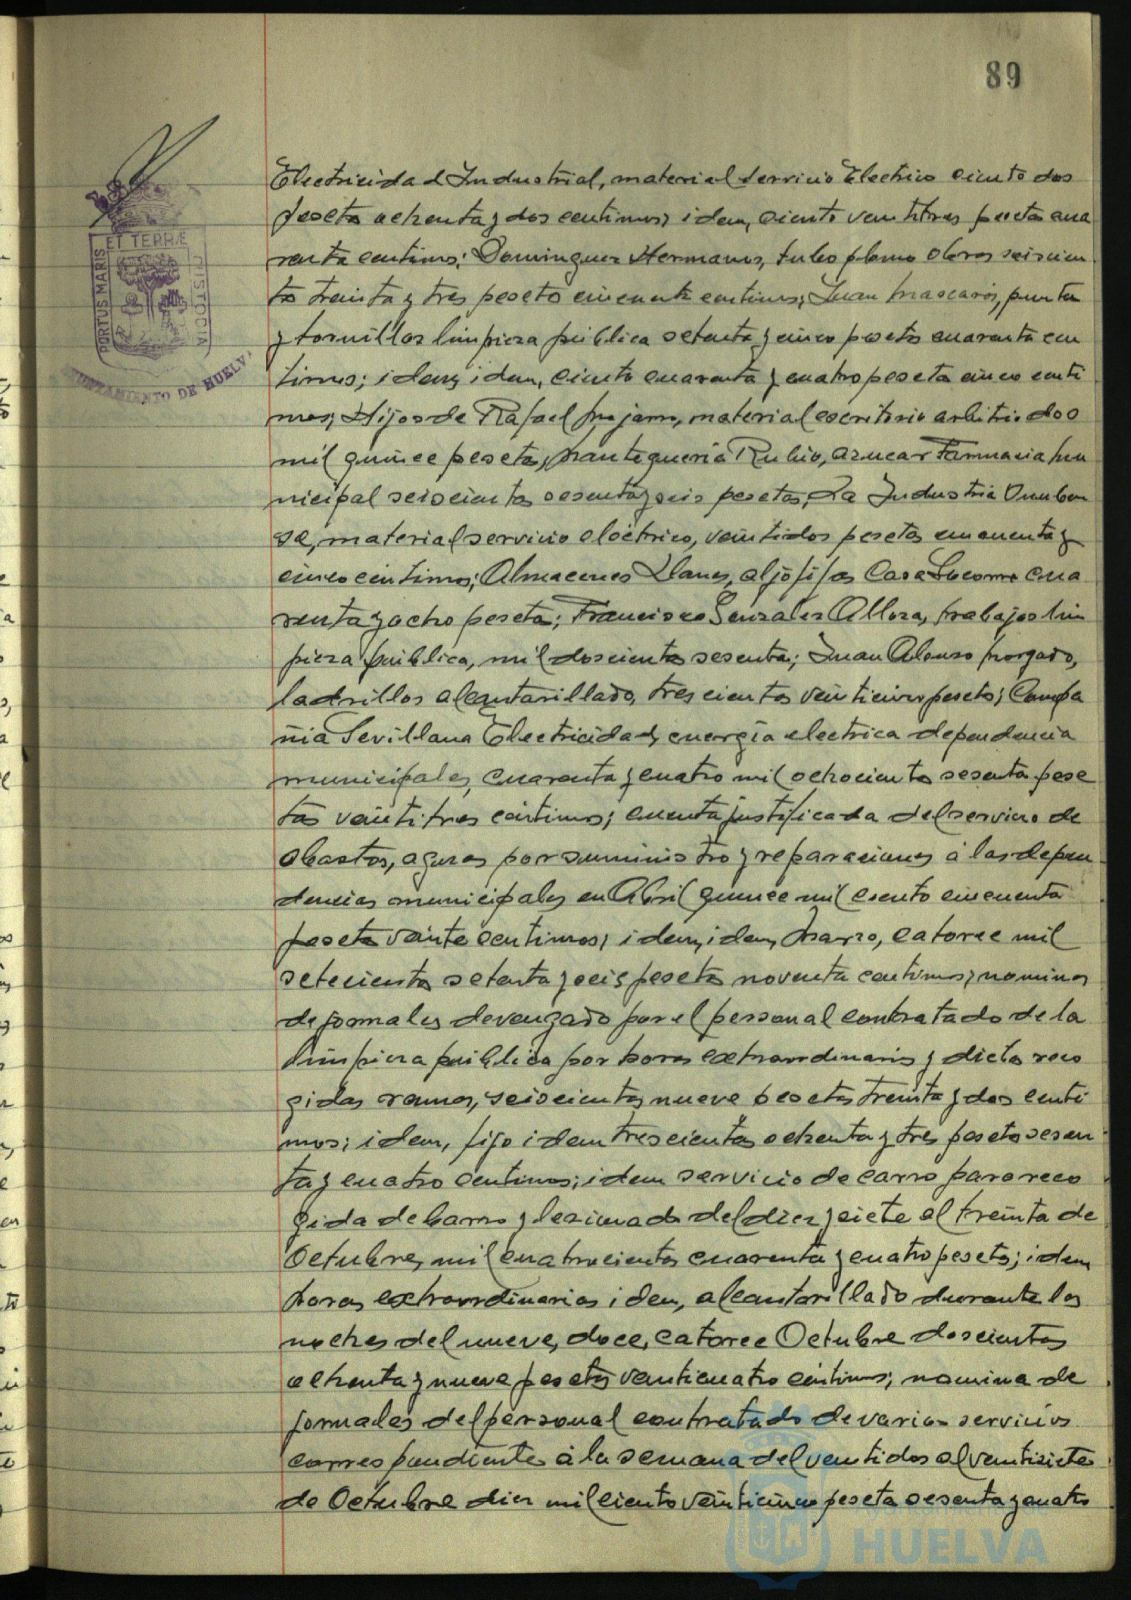 89
PORTUS MARIS ET TERRÆ CUSTODIA
AYUNTAMIENTO DE HUELVA
Electricidad Industrial, material servicio Electrico ciento dos
pesetas ochenta y dos centimos; idem, ciento veintitres pesetas cua
renta centimos; Dominguez Hermanos, tubo plomo obras seiscien
tas treinta y tres pesetas cincuenta centimos; Juan Mascarós, puntas
y tornillos limpieza pública setenta y cinco pesetas cuarenta cen
timos; idem, idem, ciento cuarenta y cuatro pesetas cinco centi
mos; Hijos de Rafael Mojarro, material escritorio arbitrios dos
mil quince pesetas; Mantequeria Rubio, azucar Farmacia Mu
nicipal seiscientas sesenta y seis pesetas; La Industria Onuben
se, material servicio eléctrico, veintidos pesetas cincuenta y
cinco centimos; Almacenes Llanes, aljofifas Casa Socorro cua
renta y ocho pesetas; Francisco Gonzalez Alloza, trabajos lim
pieza pública, mil doscientas sesenta; Juan Alonso Morgado,
ladrillos alcantarillado, trescientas veinticinco pesetas; Compa
ñia Sevillana Electricidad, energía electrica dependencias
municipales, cuarenta y cuatro mil ochocientas sesenta pese
tas veintitres céntimos; cuenta justificada del servicio de
abastos, aguas por suministro y reparaciones á las depen
dencias municipales en Abril quince mil ciento cincuenta
pesetas veinte centimos; idem, idem, Marzo, catorce mil
setecientas setenta y seis pesetas noventa centimos; nominas
de jornales devengado por el personal contratado de la
limpieza pública por horas extraordinarias y dieta reco
gidas ramos, seiscientas nueve pesetas treinta y dos centi
mos; idem, fijo idem trescientas ochenta y tres pesetas sesen
ta y cuatro centimos; idem servicio de carro para reco
gida de barro y lexionado del diez y siete al treinta de
Octubre, mil cuatrocientas cuarenta y cuatro pesetas; idem
horas extraordinarias idem, alcantarillado durante las
noches del nueve, doce, catorce Octubre doscientas
ochenta y nueve pesetas veinticuatro céntimos; nomina de
jornales del personal contratado de varios servicios
correspondiente á la semana del veintidos al veintisiete
de Octubre diez mil ciento veinticinco pesetas sesenta y cuatro
Ayuntamiento de
HUELVA